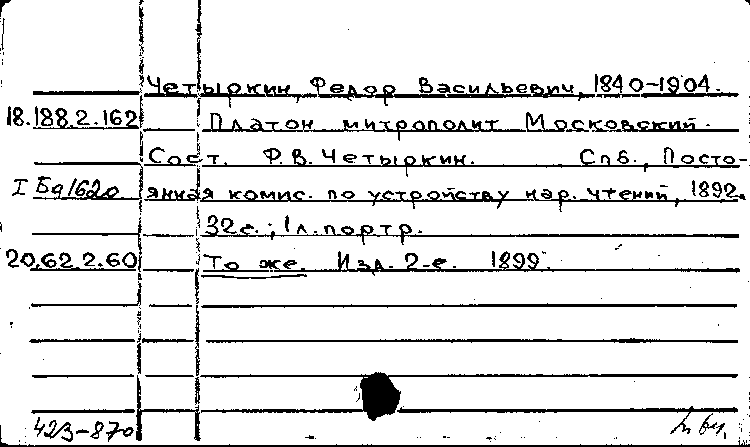 Четыркин, Федор Васильевич, 1840-1904.
18.188.2.162 Платон митрополит Московский.
Сост. Ф.В. Четыркин. Спб., Посто-
I Бд1620 янная комис. по устройству нар. чтений, 1892.
32с.; 1л. портр.
20.62.2.60 То же. Изд. 2-е. 1899.
423-870